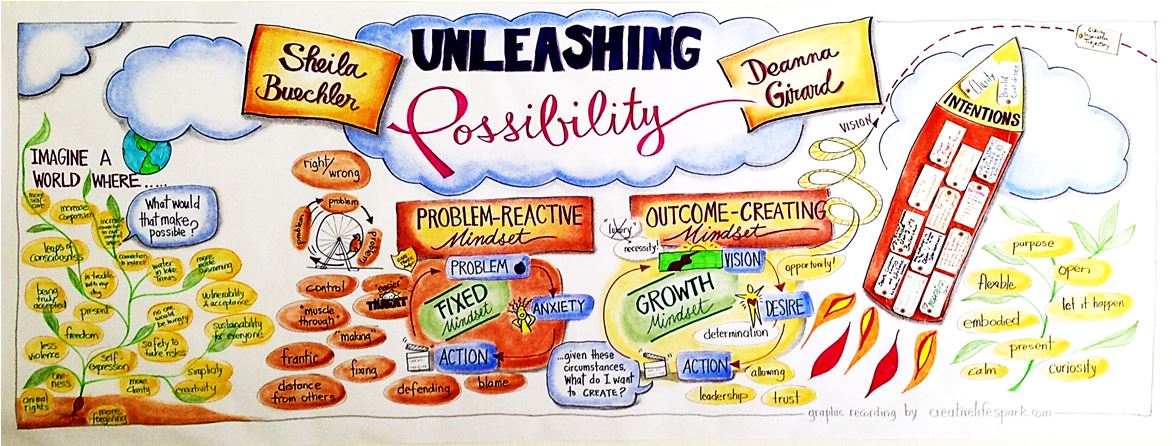 Sheila
Buechler
UNLEASHING
Possibility
Deanna
Girard
IMAGINE A
WORLD WHERE.....
What would
that make
possible?
more
self-
care
increase
compassion
leaps of
consciousness
connection
to instinct
in touch
with my
dog
water
in lake
Travis
more
swimming
being
truly
accepted
present
vulnerability
& acceptance
no one
would
be hungry
freedom
sustainability
for everyone
less
violence
safety to
take risks
self-
expression
simplicity
one-
ness
more
clarity
creativity
animal
rights
more
forgiving
right/
wrong
problem
problem
problem
control
"easier"
THREAT
"muscle
through"
"making"
frantic
fixing
distance
from others
defending
blame
PROBLEM-REACTIVE
Mindset
PROBLEM
FIXED
Mindset
ANXIETY
ACTION
OUTCOME-CREATING
Mindset
"luxury"
necessity!
VISION
opportunity!
GROWTH
Mindset
DESIRE
determination
ACTION
allowing
leadership
trust
...given these
circumstances,
What do I want
to CREATE?
VISION
Clarity
Build
Confidence
INTENTIONS
purpose
open
flexible
let it happen
embodied
present
calm
curiosity
graphic recording by creativelifespark.com